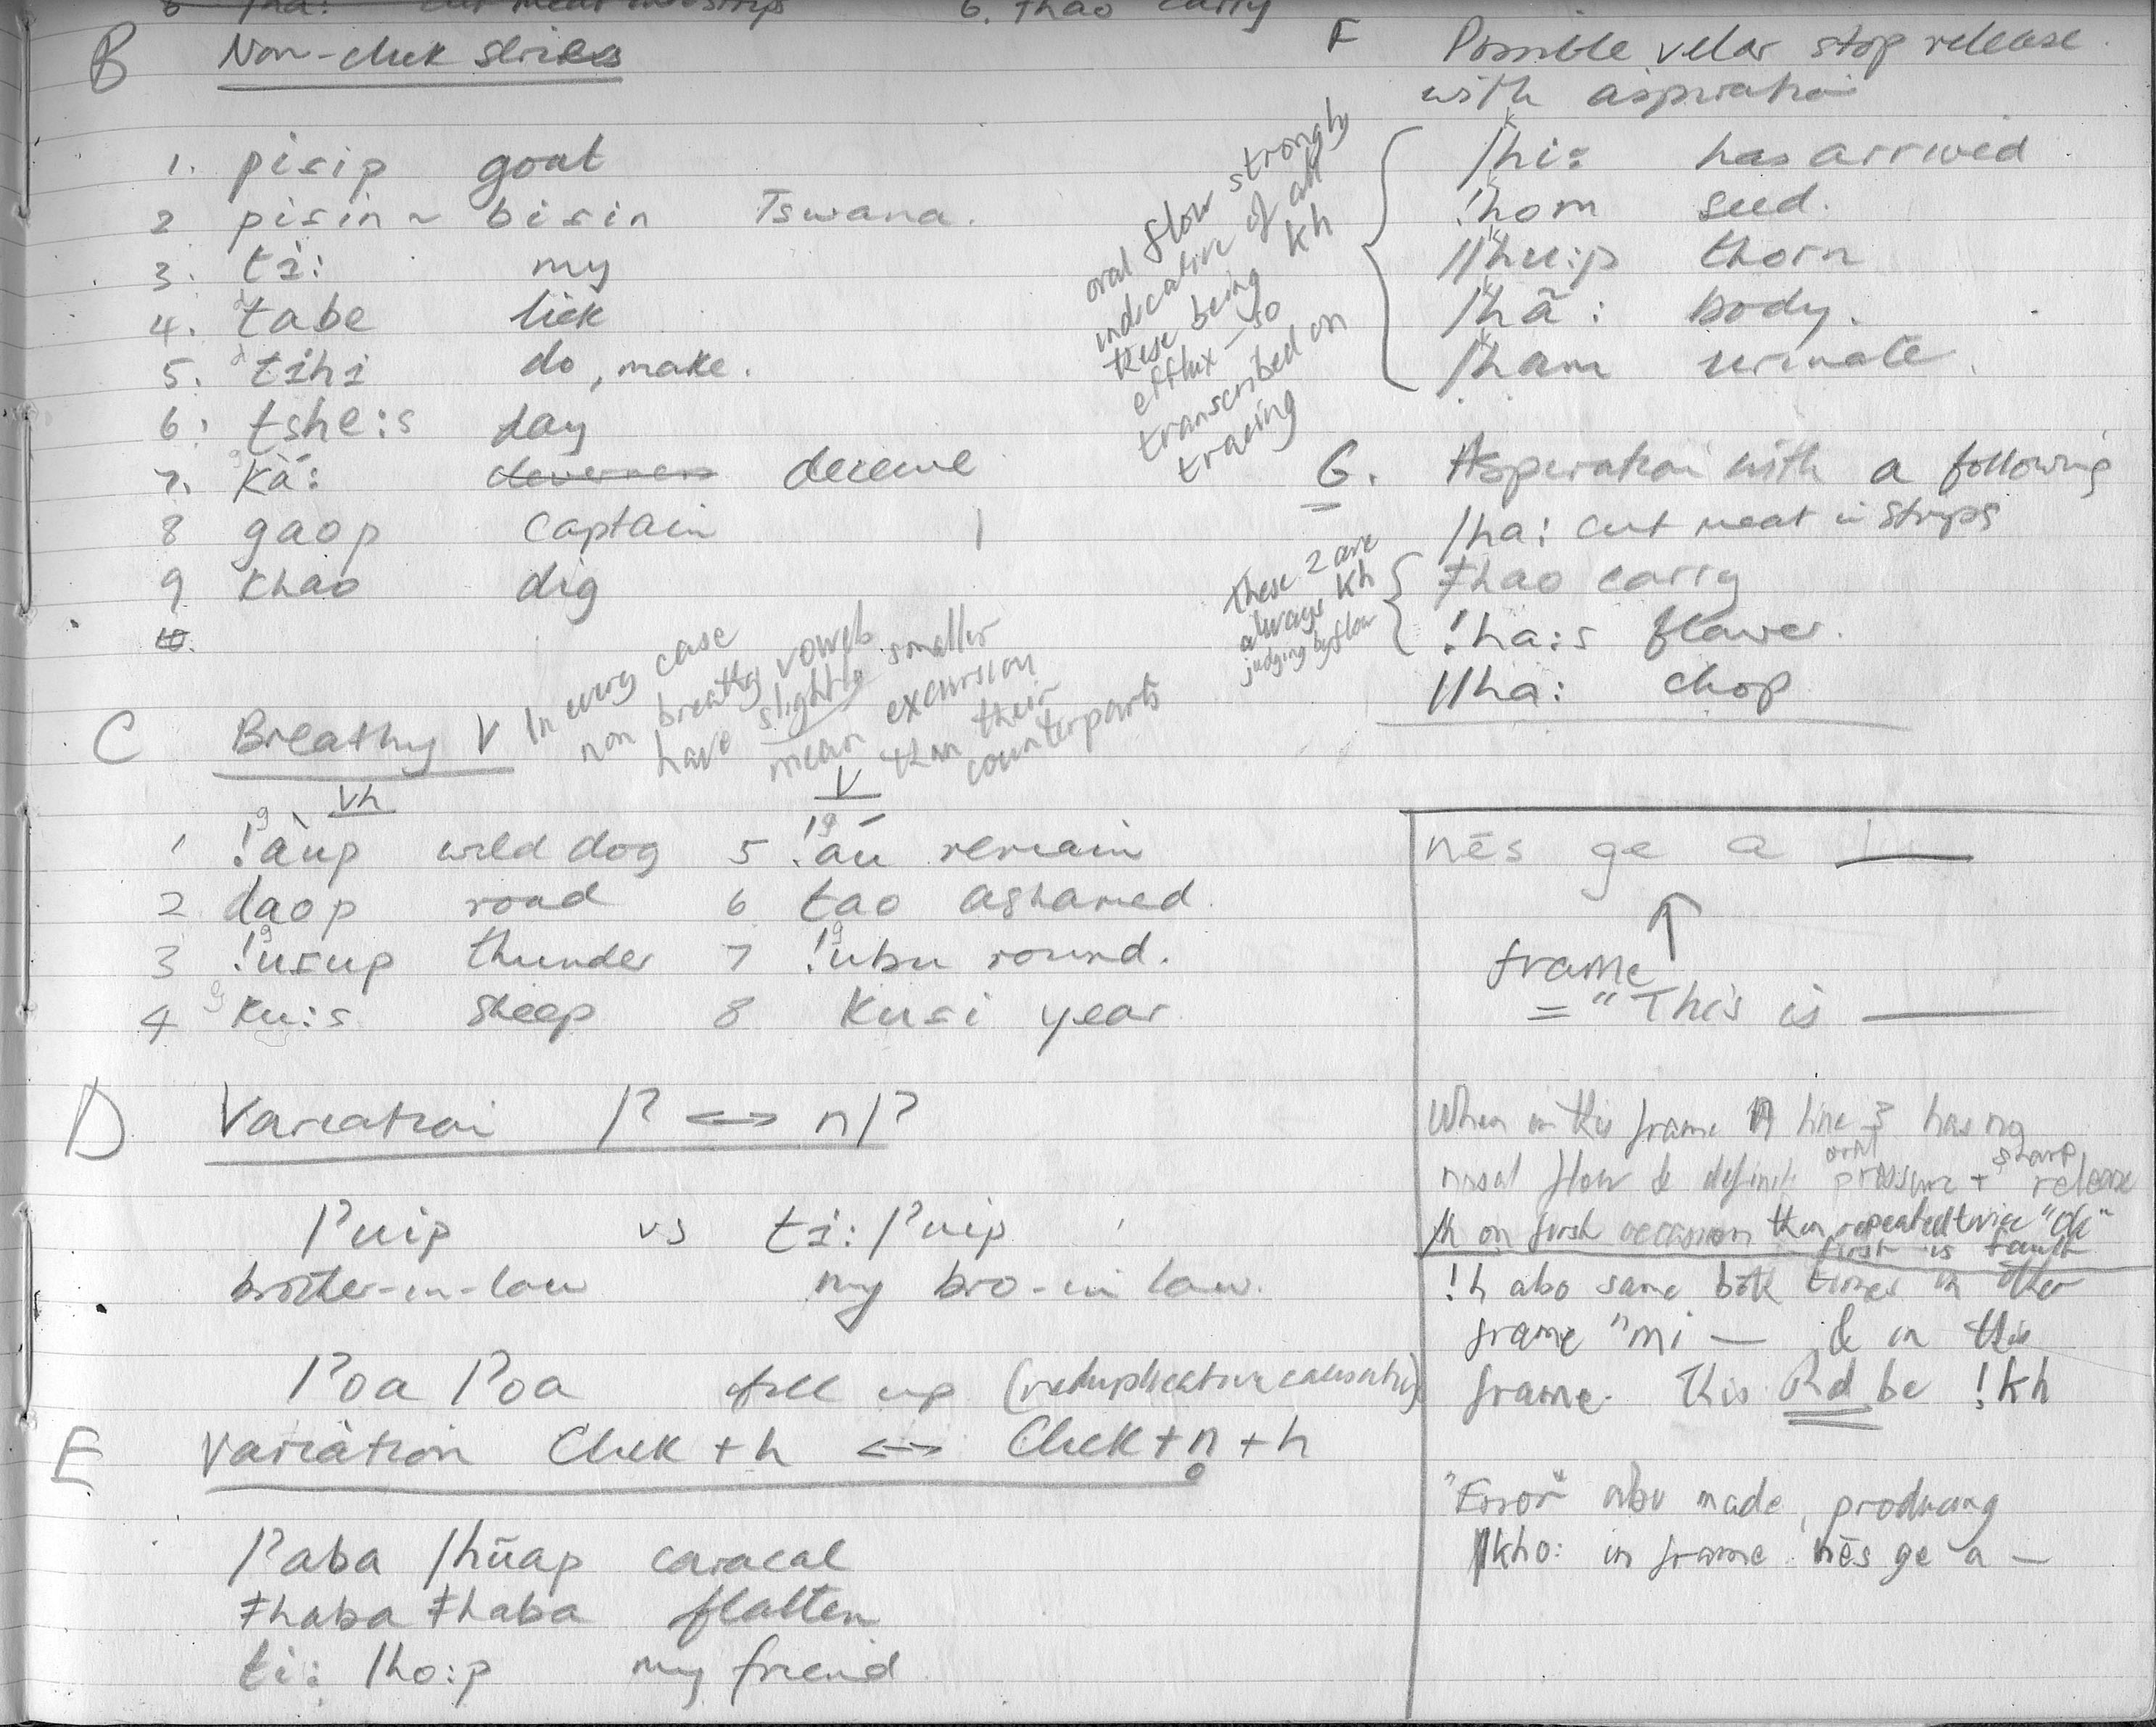 6. ǂhao carry
B Non-click stries
1. pirip goat
2 pirin ~ birin Tswana.
3. tɨ: my
4. tabe lick
5. tɨhɨ do, make.
6. tshe:s day
7. ká: deceive
8 gaop captain
9 khao dig
10.
C Breathy V
In every case
non breathy vowels
have slightly smaller
mean excursion
than their
counterparts
Vh V
1 !ᵍàup wild dog 5 !ᵍáu remain
2 daop road 6 tao ashamed.
3 !ᵍurup thunder 7 !ᵍubu round.
4 ᵍku:s sheep 8 kuri year
D Variation /ʔ <-> n/ʔ
/ʔuip vs tɨ: /ʔuip
brother-in-law my bro-in law.
/ʔoa /ʔoa fill up (reduplicative causative)
E Variation Click + h <-> Click + n̥ + h
/ʔaba /hūap caracal
ǂhaba ǂhaba flatten
ti: /ho:p my friend
F Possible velar stop release
with aspiration
/ᵏhi: has arrived
!ᵏhom seed.
//ᵏhu:p thorn
/ᵏhã: body.
/ᵏham urinate.
oral flow strongly
indicative of all
these being kh
efflux – so
transcribed on
tracing
G. Aspiration with a following
/ha: cut meat in strips
ǂhao carry
!ha:s flower.
//ha: chop
these 2 are
always kh
judging by flow
nēs ge a ___
frame
= "This is ___
When in this frame A line 3 has no
nasal flow & definite oral pressure + sharp release
/h on first occasion then repeated twice "ok"
first is faulty
!h also same both times in other
frame "mi — & in this
frame. This be !kh
"Error" also made, producing
//kho: in frame nēs ge a —